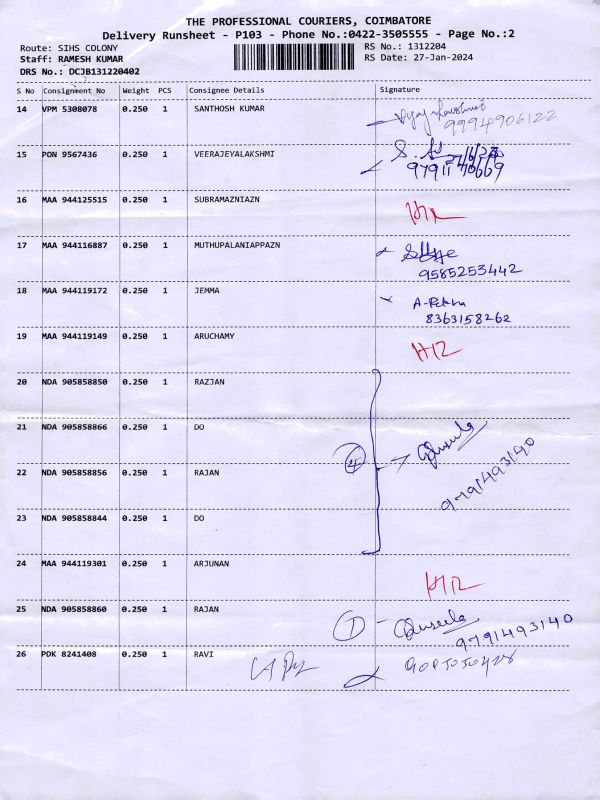 THE PROFESSIONAL COURIERS, COIMBATORE
Delivery Runsheet - P103 - Phone No.:0422-3505555 - Page No.:2
Route: SIHS COLONY
RS No.: 1312204
Staff: RAMESH KUMAR
RS Date: 27-Jan-2024
DRS No.: DCJB131220402
S No Consignment No Weight PCS Consignee Details Signature
14 VPM 5308078 0.250 1 SANTHOSH KUMAR
9994906122
15 PON 9567436 0.250 1 VEERAJEYALAKSHMI
9791170669
16 MAA 944125515 0.250 1 SUBRAMAZNIAZN
17 MAA 944116887 0.250 1 MUTHUPALANIAPPAZN
9585253442
18 MAA 944119172 0.250 1 JEMMA
8363158262
19 MAA 944119149 0.250 1 ARUCHAMY
20 NDA 905858850 0.250 1 RAZJAN
21 NDA 905858866 0.250 1 DO
22 NDA 905858856 0.250 1 RAJAN 4
9791493140
23 NDA 905858844 0.250 1 DO
24 MAA 944119301 0.250 1 ARJUNAN
25 NDA 905858860 0.250 1 RAJAN 1
9791493140
26 PDK 8241408 0.250 1 RAVI